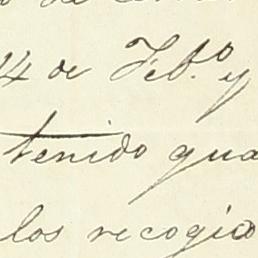 de
24 de Feb.º y
tenido gua
los recogio